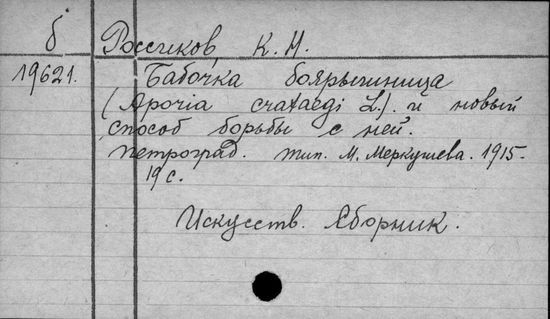 б Россиков, К. Н.
19621. Бабочка боярышница
(Aporia crataegi L.). и новый
способ борьбы с ней.
Петроград. тип. М. Меркушева. 1915.
19 с.
Искусств. Сборник.